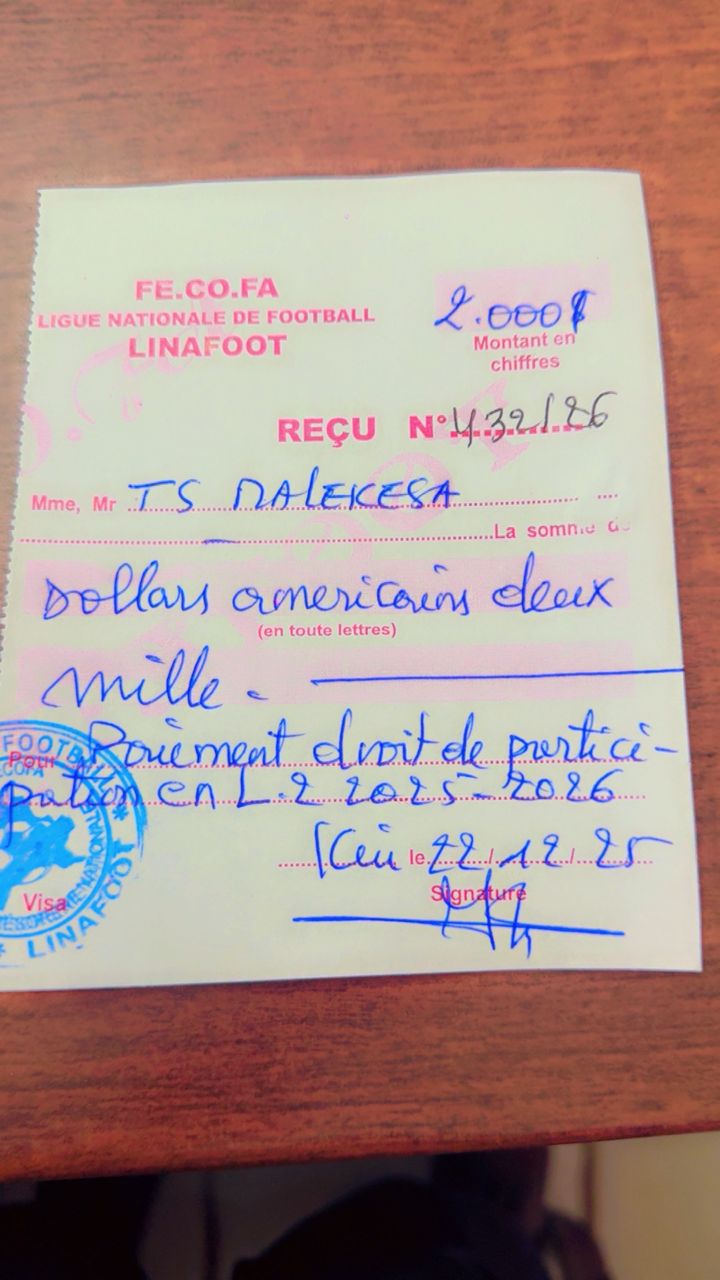 FE.CO.FA
LIGUE NATIONALE DE FOOTBALL
LINAFOOT
2.000$
Montant en
chiffres
REÇU N° 432/26
Mme, Mr TS MALEKESA
La somme de
Dollars americains deux
(en toute lettres)
mille.
Pour Paiement droit de partici-
pation en L.2 2025-2026
Kin le 22/12/25
Signature
Visa
FOOTBALL
NATIONALE
* LINAFOOT *